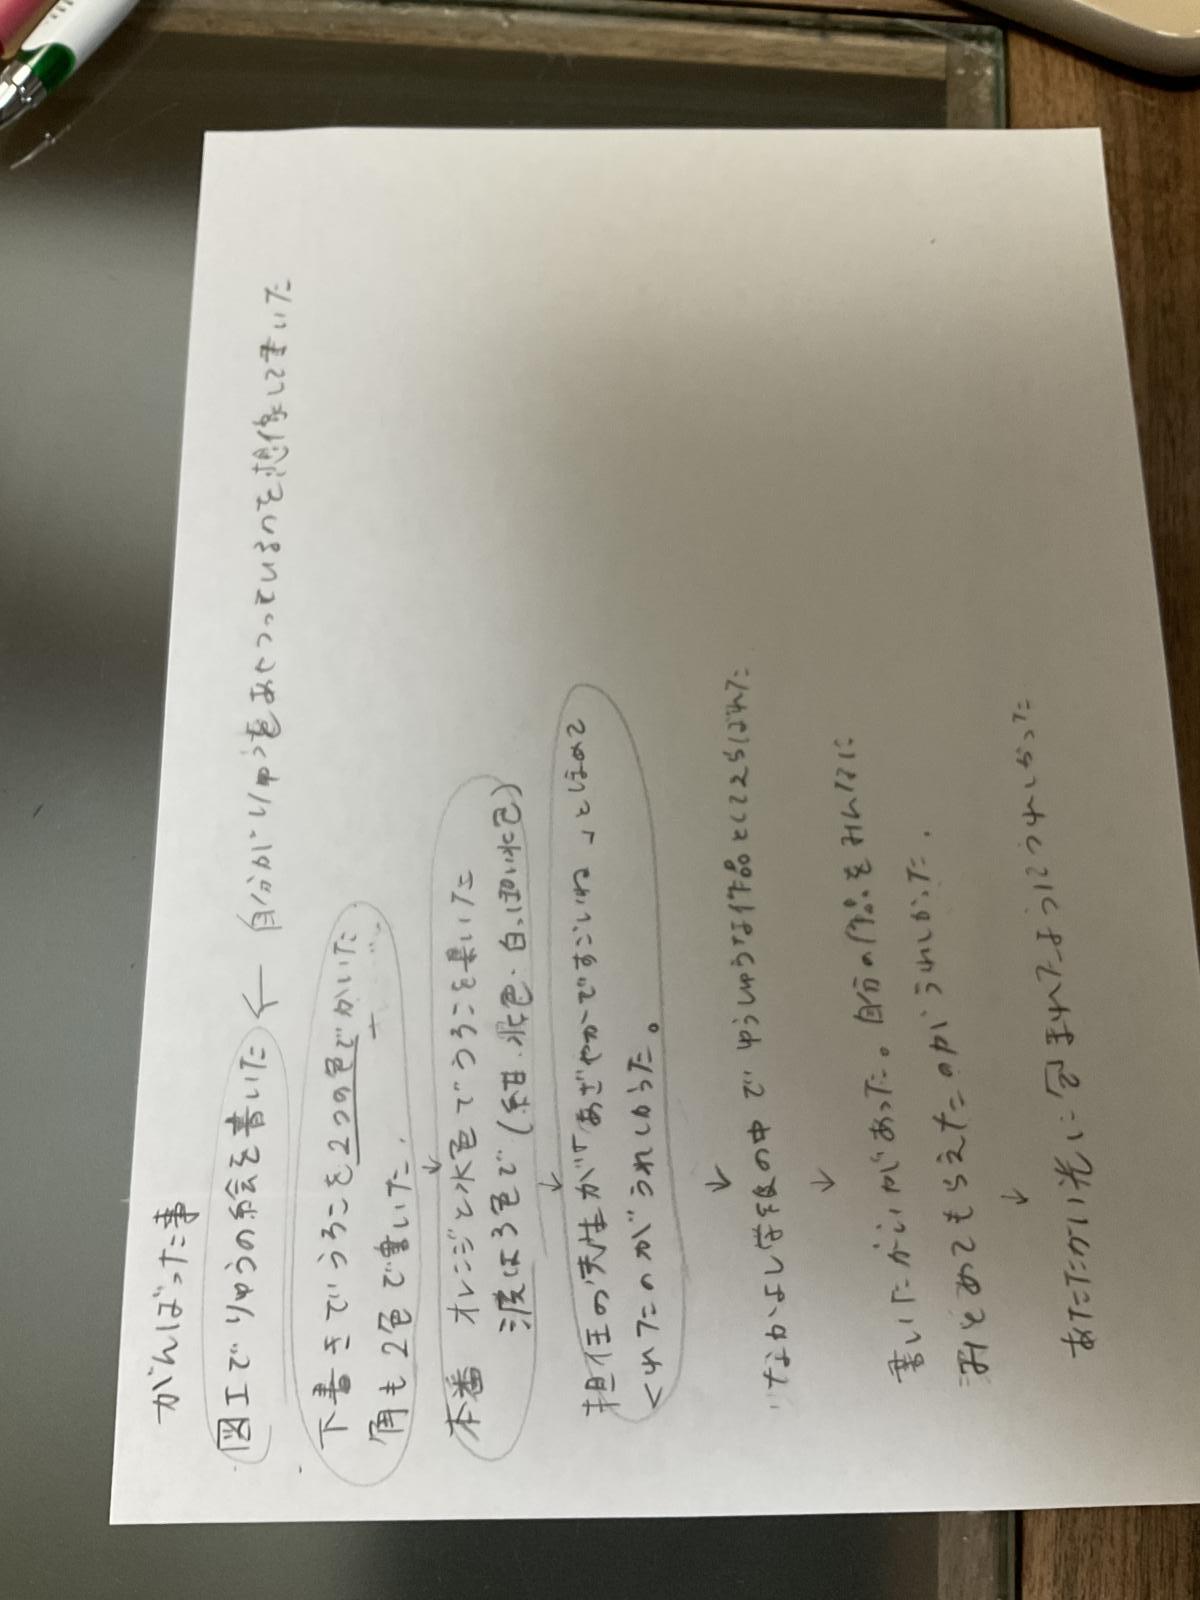 がんばった事
図工でりゅうの絵を書いた ← 自分がりゅうをあやつっているのを想像してかいた
下書きでうろこを2つの色でかいた
角も2色で書いた.
↓
本番 オレンジと水色でうろこを書いた
波は3色で(紺・水色・白っぽい水色)
↓
担任の先生が「あざやかですごいね」とほめて
くれたのがうれしかった。
↓
なかよし学級の中でゆうしゅうな作品としてえらばれた
↓
書いたかいがあった。自分の作品をみんなに
みとめてもらえたのがうれしかった.
↓
あたたかい光に包まれたようにうれしかった